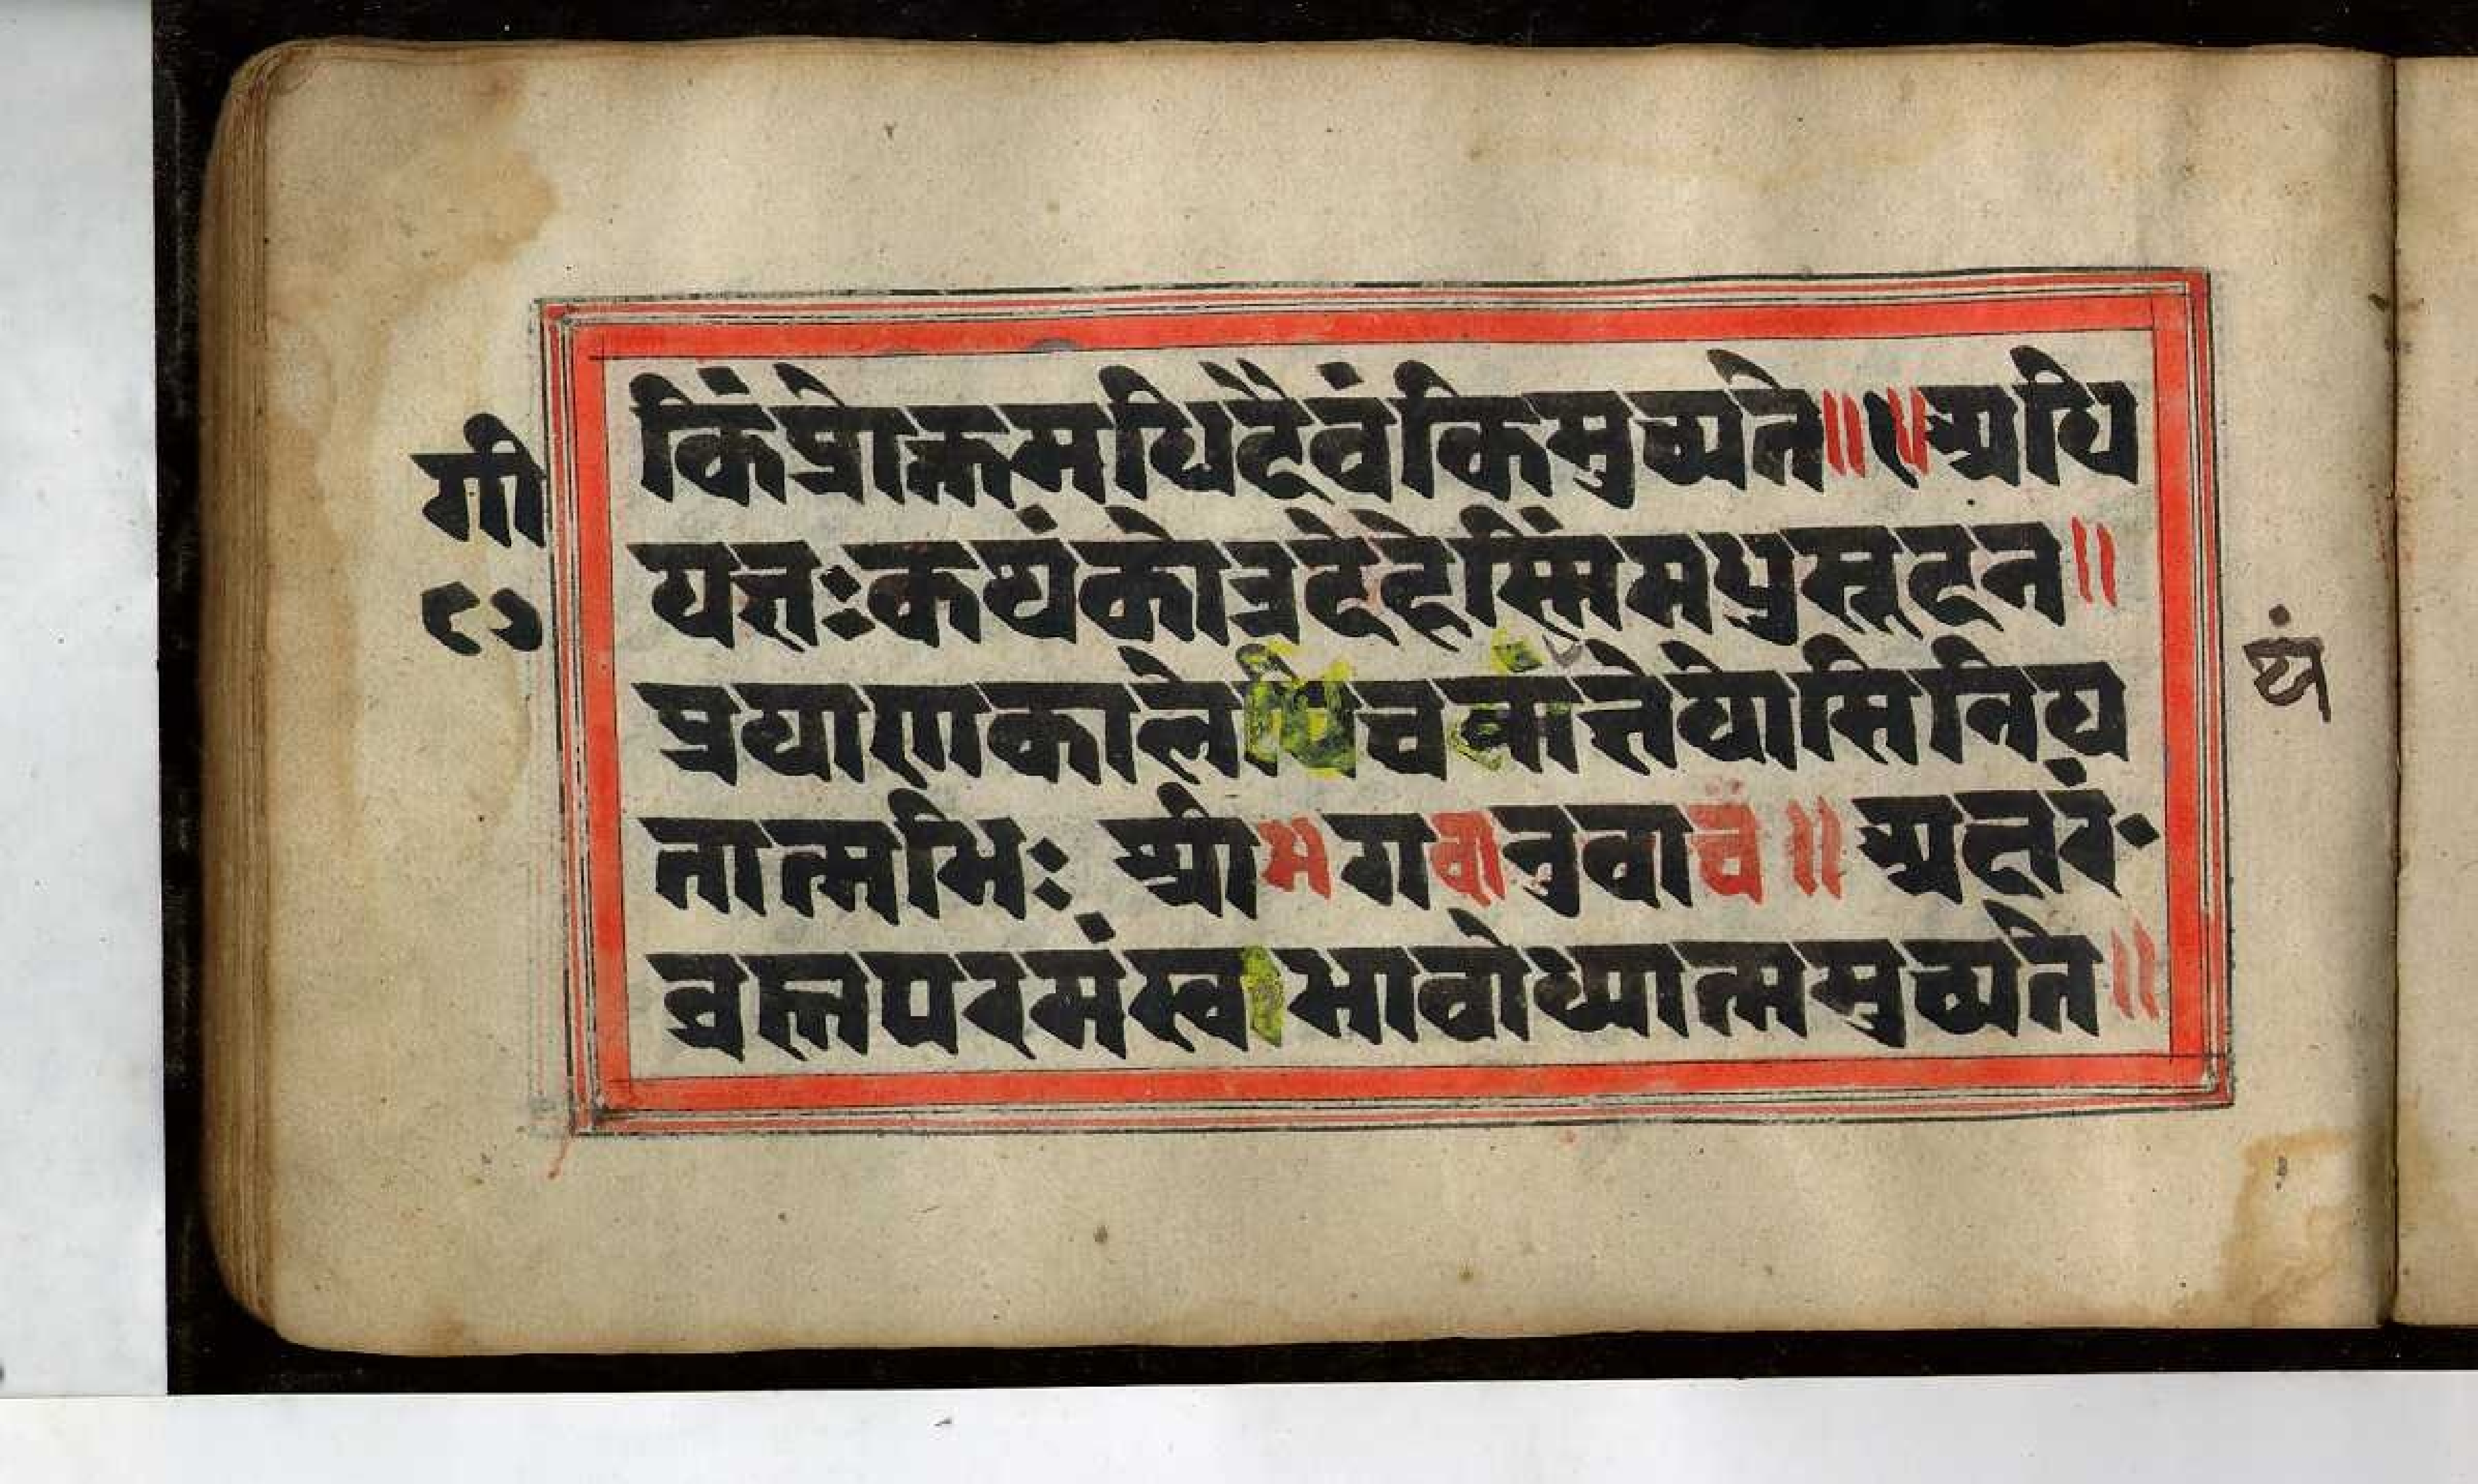 किंप्रोक्तमधिदैवंकिमुच्यते॥१॥अधि
गी
यज्ञःकथंकोत्रदेहेस्मिंमधुसूदन॥
८१
प्रयाणकालेपिचवाज्ञेयोसिनिय
थं
तात्मभिः श्रीभगवानुवाच॥ अक्षरं
ब्रह्मपरमंस्वभावोध्यात्ममुच्यते॥